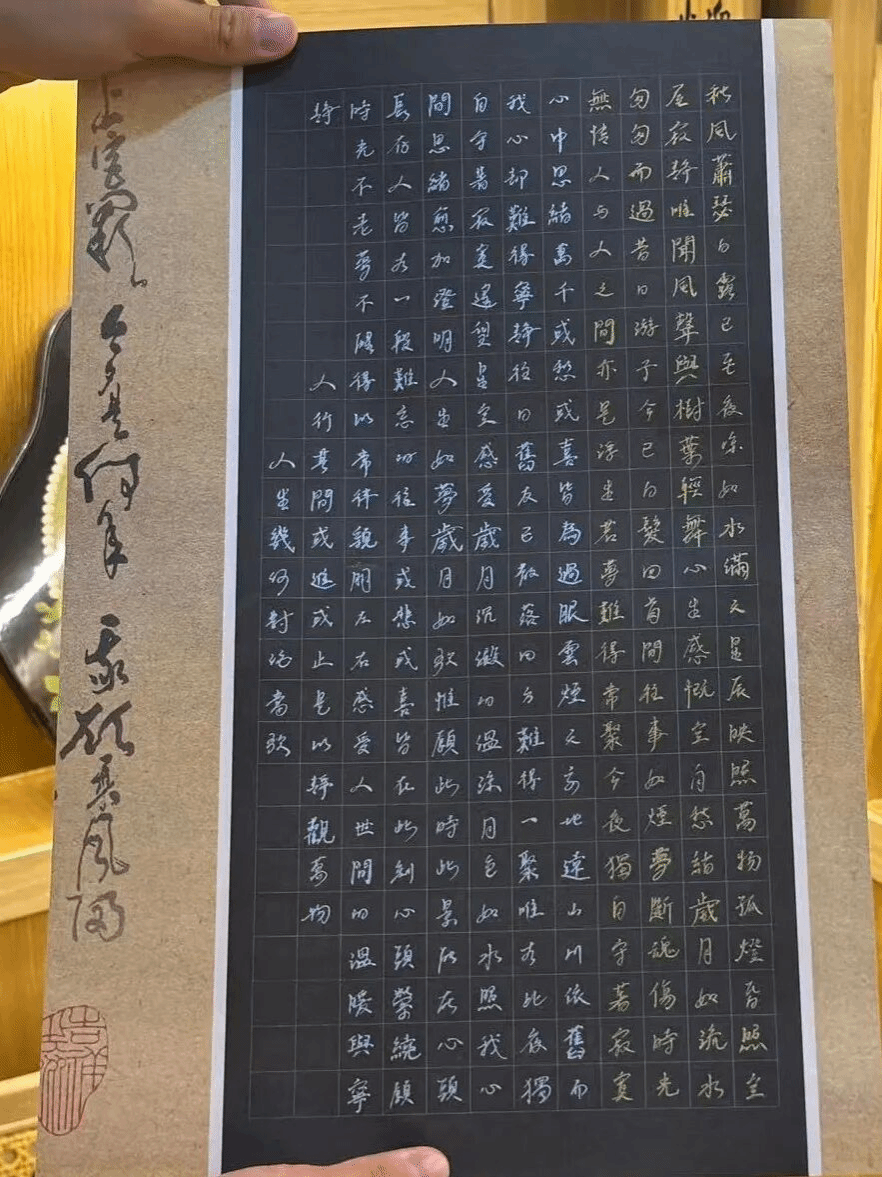 秋風蕭瑟白露已至夜涼如水滿天星辰映照萬物孤燈昏照空
屋寂靜唯聞風聲與樹葉輕舞心生感慨空自愁結歲月如流水
匆匆而過昔日游子今已白髮回首間往事如煙夢斷魂傷時光
無情人与人之間亦是浮生若夢難得常聚今夜獨自守著寂寞
心中思緒萬千或愁或喜皆為過眼雲煙天高地遠山川依舊而
我心卻難得寧靜往日舊友已散落四方難得一聚唯有此夜獨
自守著寂寞遙望星空感受歲月沉澱的溫涼月色如水照我心
間思緒愈加澄明人生如夢歲月如歌惟願此時此景所在心頭
長存人皆有一段難忘的往事或悲或喜皆在此刻心頭縈繞願
時光不老夢不醒得以常伴親朋左右感受人世間的溫暖與寧
靜 人行其間或進或止是以靜觀萬物
人生幾何對酒當歌
上宮闕今夕是何年我欲乘風歸